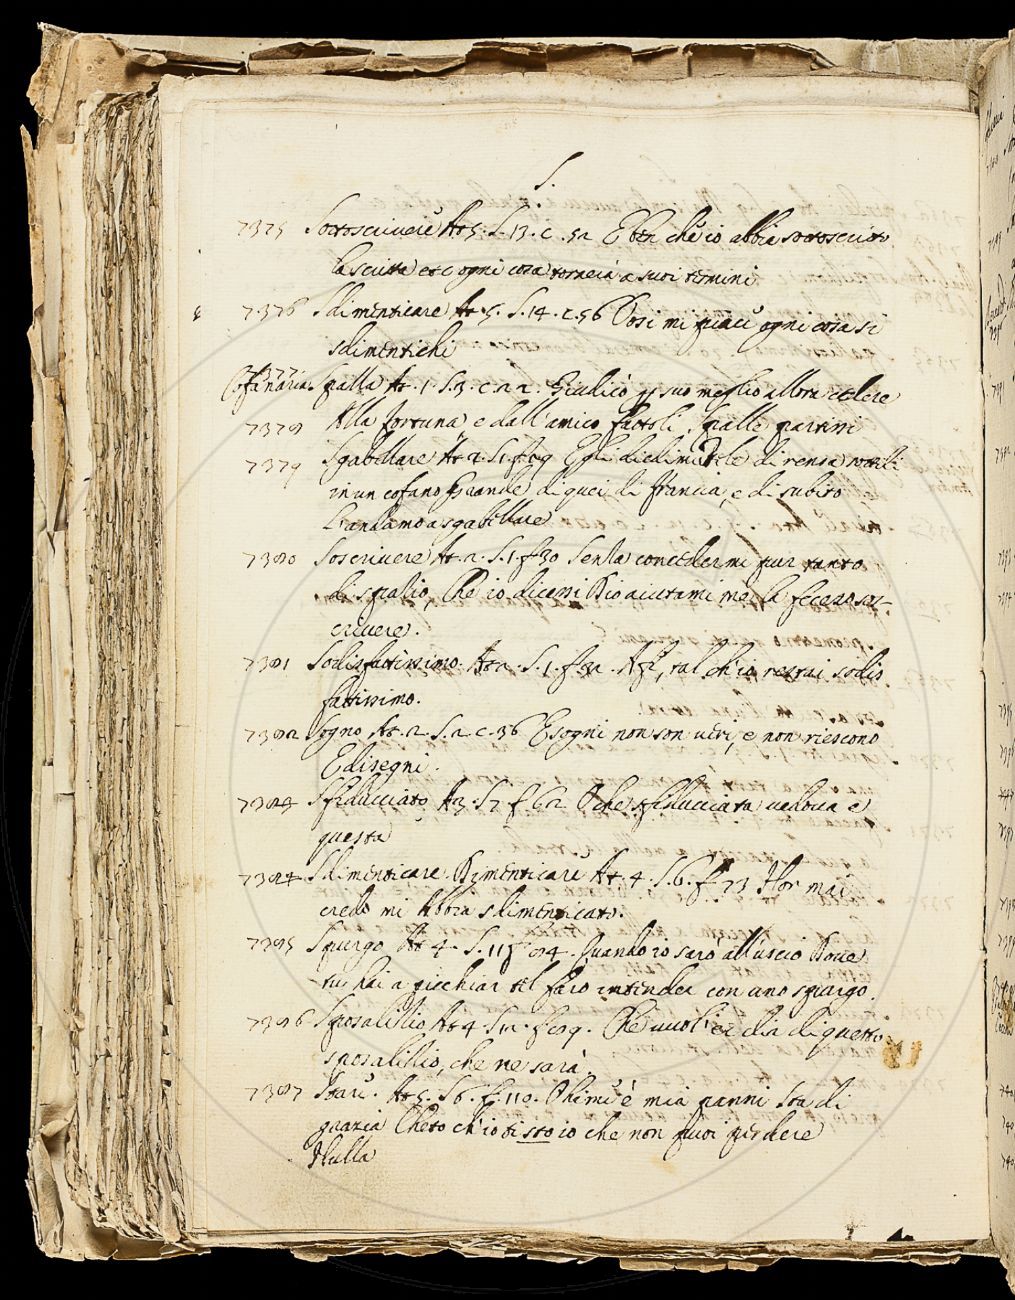 S.
7375 Sottoscrivere At. 5. S. 13. c. 52 E ben che io abbia sottoscritto
la scritta etc ogni cosa tornerà a suoi termini
7376 Sdimenticare At. 5. S. 14. c. 56 Così mi piace ogni cosa si
sdimentichi
7377
Spalla At. 1. S. 3. c. 22. Giudicò p suo meglio allora cedere
7378 Alla fortuna e dall'amico fattoli spalle partirsi
7379 Sgabellare At. 2. S. 1. f. 29 Egli diedi
in un cofano grande di quei di francia, e di subito
L'andamo a sgabellare
7380 Soscrivere At. 2. S. 1. f. 30 Senza concedermi pur tanto
di spatio, Che io dicessi Dio aiutami me la fecero sos-
crivere.
7381 Sodisfattissimo. At. 2. S. 1. f. 32. tal ch'io restai sodis
fattissimo.
7382 Sogno At. 2. S. 2. c. 36 E sogni non son veri, e non riescono
E disegni.
7383 Sfiducciato At. 3. S. 7. f. 62 O che sfiducciata vedova è
questa
7384 Sdimenticare. Dimenticare At. 4. S. 6. f. 73 Hor mai
credo mi abbia sdimenticato.
7385 Spurgo At. 4. S. 11. f. 84. Quando io sarò all'uscio Dove
tu hai a picchiar tel farò intender con uno spurgo.
7386 Sposalitio At. 4. S. 12. f. 89. Che vuoi ei dia di questo
sposalitio, che ne sarà.
7387 Stare. At. 5. S. 6. f. 110. Ohime è mia panni sta di
gratia Cheto ch'io ti sto io che non puoi perdere
Nulla